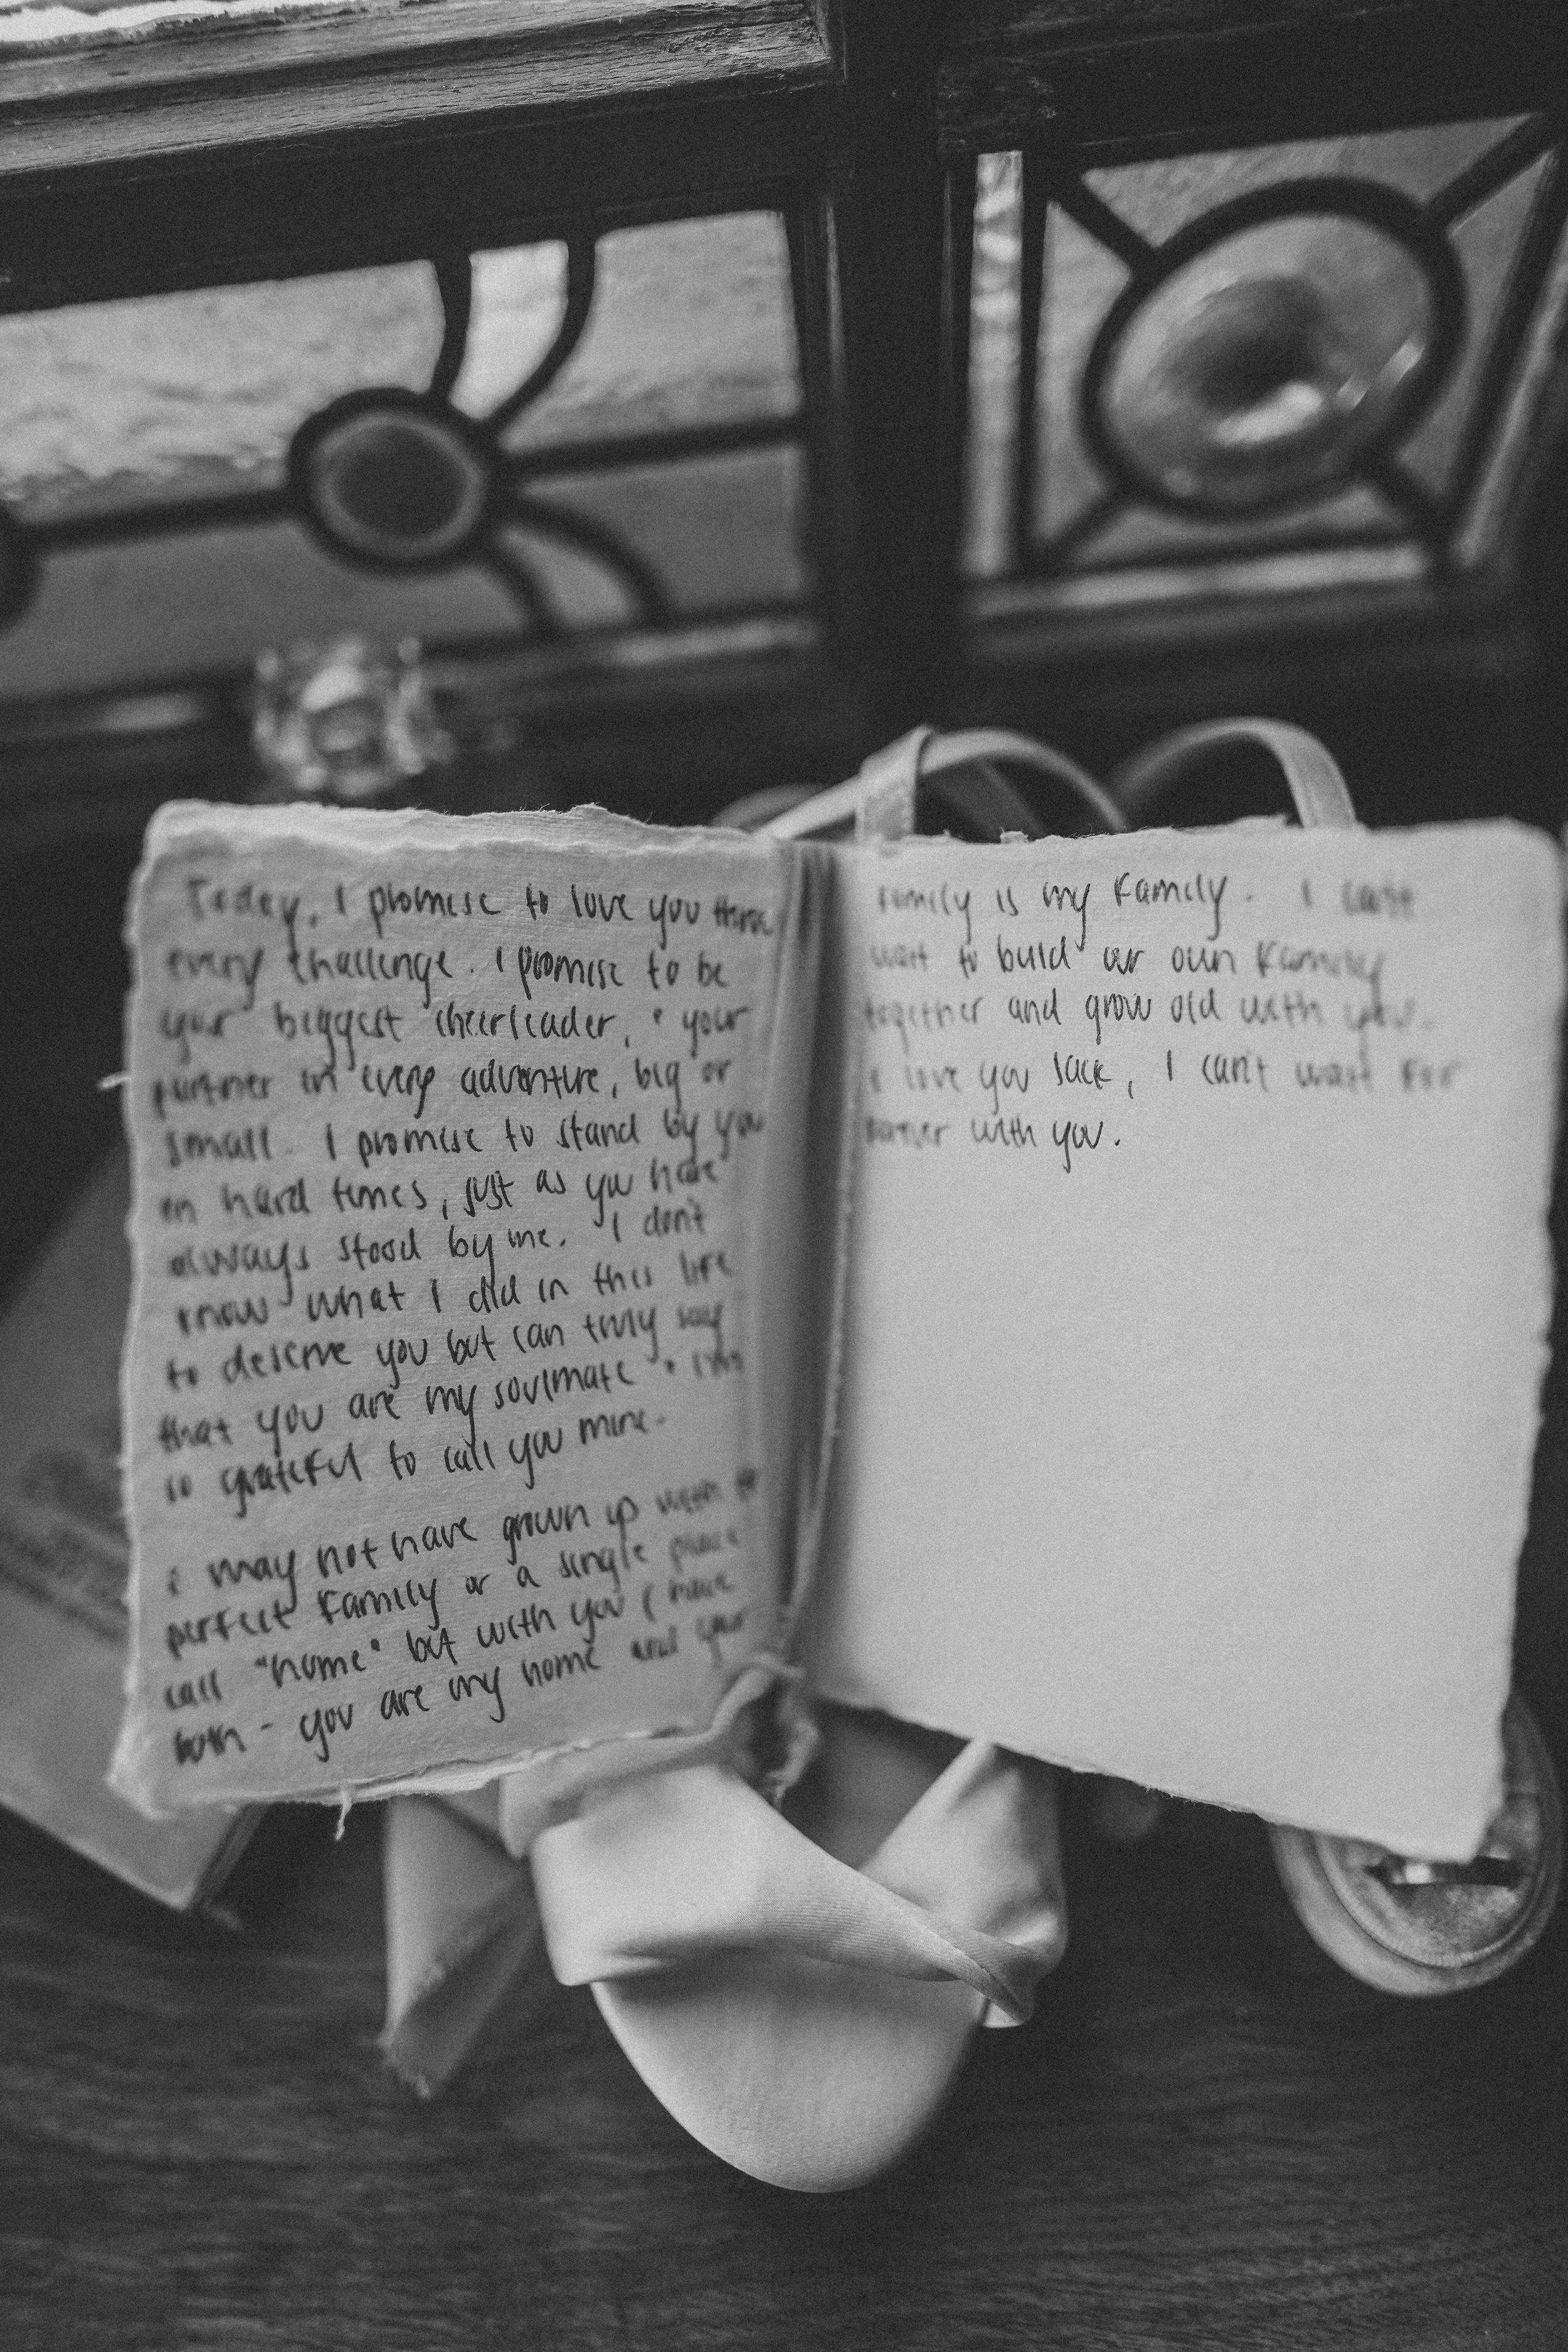 Today, I promise to love you thru
every challenge. I promise to be
your biggest cheerleader, + your
partner in every adventure, big or
small. I promise to stand by you
in hard times, just as you have
always stood by me. I don't
know what I did in this life
to deserve you but can truly say
that you are my soulmate + I'm
so grateful to call you mine.
I may not have grown up with
perfect family or a single place
call "home" but with you I have
both - you are my home and your
family is my family. I can't
wait to build our own family
together and grow old with you.
I love you Jack, I can't wait for
forever with you.